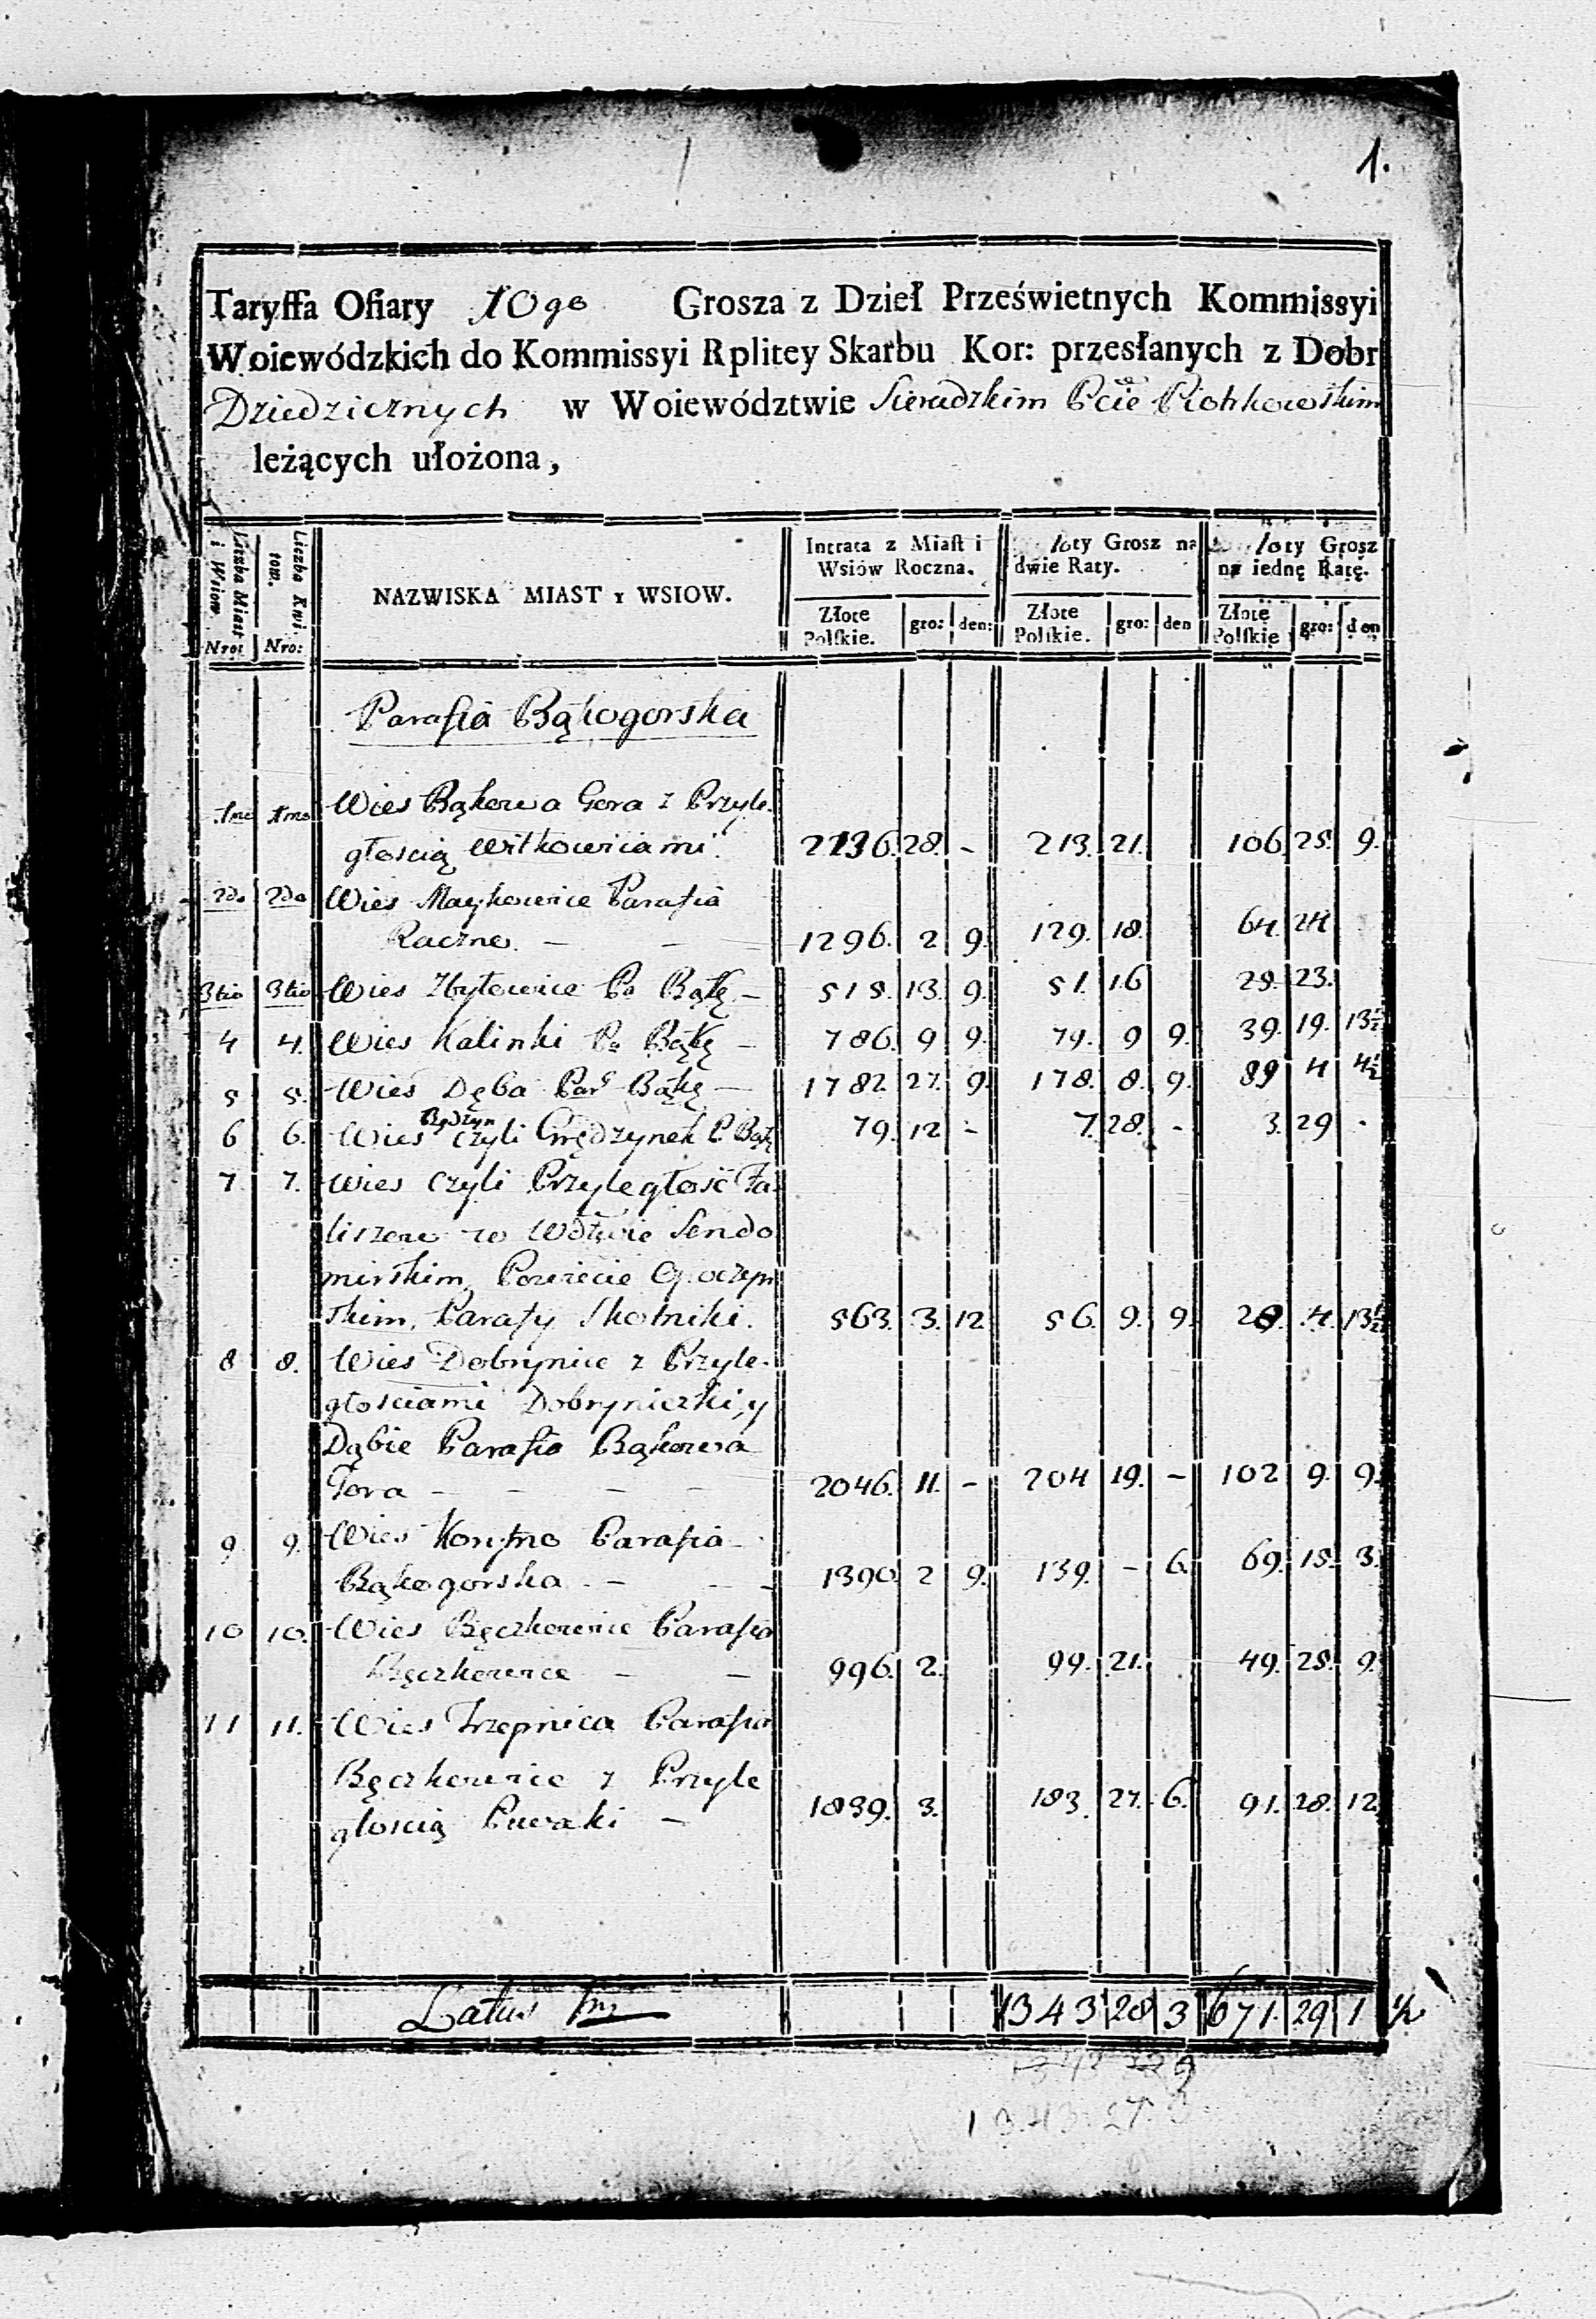 1.
Taryffa Ofiary 10go Grosza z Dzieł Prześwietnych Kommissyi
Woiewódzkich do Kommissyi Rplitey Skarbu Kor: przesłanych z Dobr
Dziedzicznych w Woiewództwie Sieradzkim Pcie Piotrkowskim
leżących ułożona,
Liczba Miast i Wsiow. Nro: Liczba Kwitow. Nro: NAZWISKA MIAST y WSIOW. Intrata z Miast i Wsiów Roczna. Złote Polskie. gro: den: 10ty Grosz na dwie Raty. Złote Polskie. gro: den 10ty Grosz na iednę Ratę. Złote Polskie gro: den
Parafia Bąkogorska
1mo 1mo Wies Bąkowa Gora z Przyle-
głoscią Witkowicami. 2136. 28. - 213. 21. 106. 25. 9.
2do 2do Wies Maykowice Parafia
Raczno. - - 1296. 2 9. 129. 18. 64. 24
3tio 3tio Wies Zbyłowice Pa Bąkę - 515. 13. 9. 51. 16 25. 23.
4 4. Wies Kalinki Pa Bąkę - 786. 9 9. 79. 9 9. 39. 19. 13½
5 5. Wies Dęba Par Bąkę - 1782 27. 9. 178. 8. 9. 89 4 4½
6 6. Wies Będzyn czyli Grędzynek P. Bąkę 79. 12 - 7. 28. - 3. 29 -
7 7. Wies czyli Przyległość Fa
liszew w Wdztwie Sendo
mirskim, Powiecie Opoczyn
skim, Parafy Skotniki. 563. 3. 12 56. 9. 9. 28. 4. 13½
8 8. Wies Dobrynice z Przyle-
głosciami Dobryniczki, y
Dąbie Parafia Bąkowa
Gora - - - - 2046. 11. - 204 19. - 102 9. 9.
9 9. Wies Korytno Parafia
Bąkogorska - - - 1390 2 9. 139. - 6. 69. 15. 3.
10 10. Wies Bęczkowice Parafia
Bęczkowice - - 996. 2. 99. 21. 49. 25. 9.
11 11. Wies Trzepnica Parafia
Bęczkowice z Przyle
głoscią Piwaki - 1839. 3. 183. 27. 6. 91. 28. 12
Latus 1343 28 3 671. 29 1 ½
1343. 27. 3